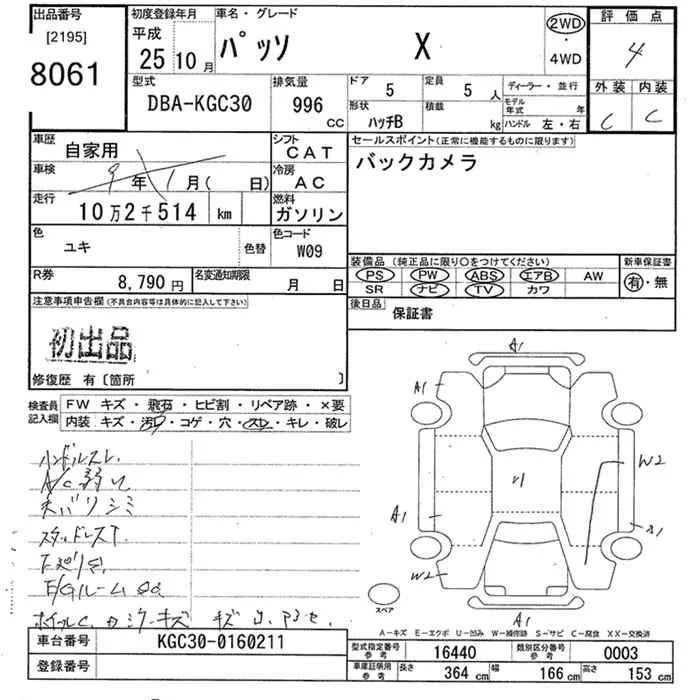 出品番号
[2195]
8061
初度登録年月
平成
25 10 月
車名・グレード
パッソ X
2WD
・
4WD
評価点
4
外装 内装
C C
型式
DBA-KGC30
排気量
996
CC
ドア
5
定員
5 人
形状
ハッチB
積載
kg
ディーラー・並行
モデル年式 年
ハンドル 左・右
車歴
自家用
シフト
CAT
車検
9 年 1 月( 日)
冷房
AC
走行
10万2千514 km
燃料
ガソリン
色
ユキ
色替
色コード
W09
R券
8,790 円
名変通知期限
月 日
セールスポイント(正常に機能するものに限ります)
バックカメラ
装備品 (純正品に限り〇をつけてください)
PS PW ABS エアB AW
SR ナビ TV カワ
新車保証書
有・無
後日品
保証書
注意事項申告欄(不具合内容等は具体的に記入して下さい)
初出品
修復歴 有〔箇所 〕
検査員記入欄
FW キズ・飛石・ヒビ割・リペア跡・×要
内装 キズ・汚レ・コゲ・穴・スレ・キレ・破レ
ハンドルスレ.
A/C弱い
天バリシミ
スタッドレスT
下廻りS
E/Gルーム
A1
A1
A1
W2
W2
A1
スペア
A-キズ E-エクボ U-凹み W-補修跡 S-サビ C-腐食 XX-交換済
車台番号
KGC30-0160211
登録番号
型式指定番号
参考
16440
類別区分番号
参考
0003
車庫証明用
参考
長さ
364 cm
幅
166 cm
高さ
153 cm